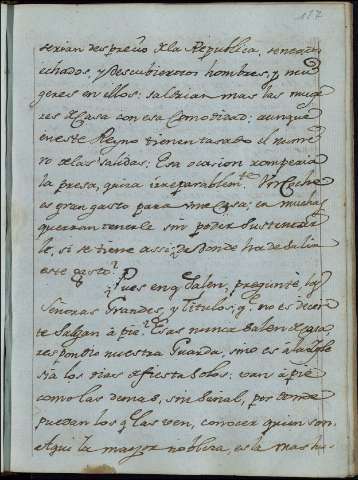 117
serian desprecio de la Republica, sentados
echados, y descubierotos hombres, y mu
geres en ellos: saldrian mas las muge
res de Casa con esa Comodidad: aunque
en este Reyno tienen tasado el nume
ro de las salidas: Esa ocasion romperia
la presa, quiza irreparablem.te Vn Coche
es gran gasto para una Casa; en muchas
querran tenerle sin poder sustentar
le, si se tiene assi, de donde ha de salir
este gasto?
¿Pues en q salen, pregunté, las
Señoras Grandes, y Titulos; q.e no es decen
te Salgan à pie? Esas nunca Salen de casa,
respondio nuestra Guarda, sino es à la Igle
sia los dias de fiesta solos: van à pie
como las demas, sin Señal, por donde
puedan los q las ven, conocer quien son.
Aqui la mayor nobleza, es la mas hu-